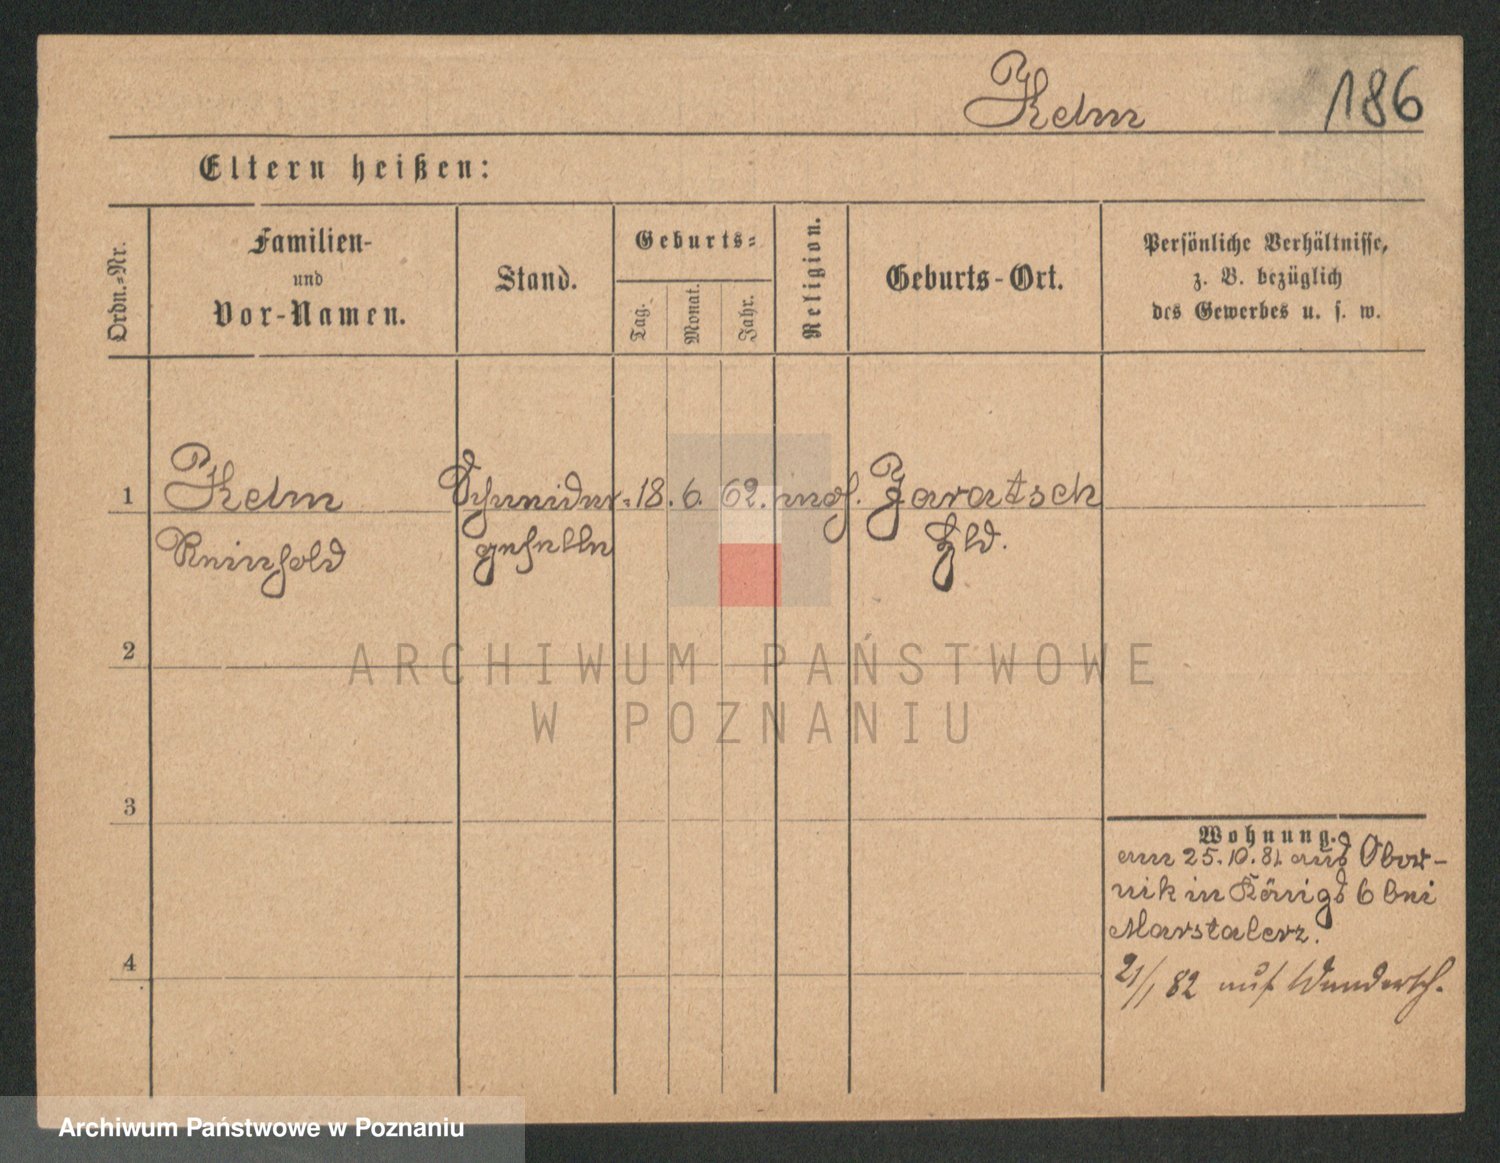 Kelm 186
Eltern heißen:
Ordn.-Nr.
Familien-
und
Vor-Namen.
Stand.
Geburts-
Tag.
Monat.
Jahr.
Religion.
Geburts-Ort.
Persönliche Verhältnisse,
z. B. bezüglich
des Gewerbes u. s. w.
1 Kelm Schneider- 18. 6. 62. evgl.
Reinhold geselle
2
3
4
Wohnung.
am 25.10.81 aus Obor-
nik in Königs 6 bei
Marstalerz.
21/1 82 auf Wandersch.
ARCHIWUM PAŃSTWOWE
W POZNANIU
Archiwum Państwowe w Poznaniu